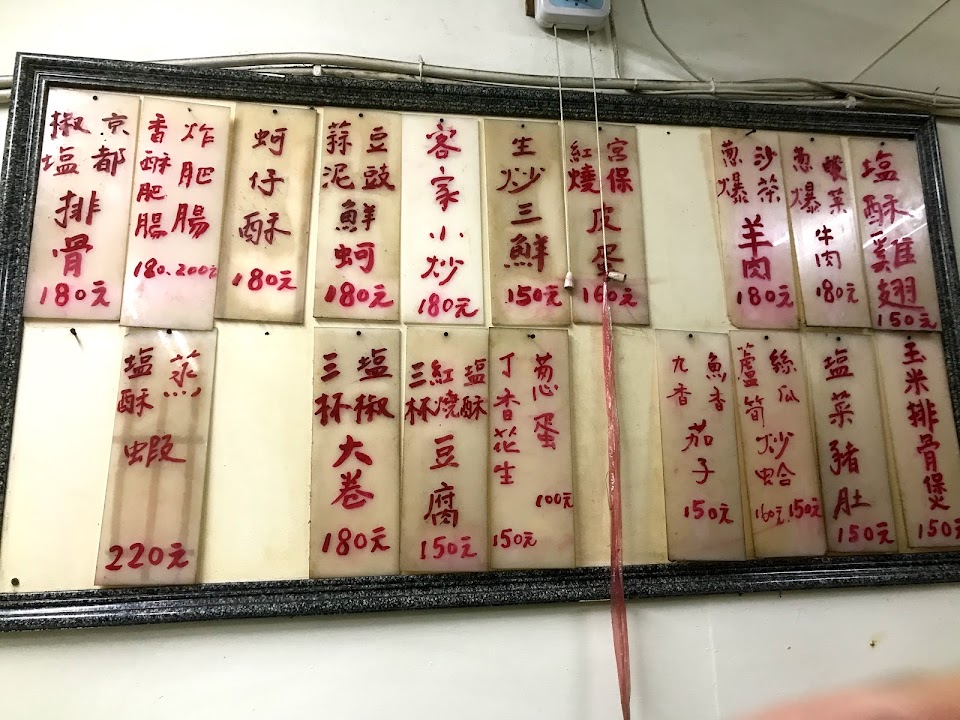 塩酥雞翅
150元
酸菜
葱爆
牛肉
180元
沙茶
葱爆
羊肉
180元
宮保
紅燒
皮蛋
160元
生炒三鮮
150元
客家小炒
180元
豆豉
蒜泥
鮮蚵
180元
蚵仔酥
180元
炸肥腸
香酥肥腸
180.200元
京都
椒塩
排骨
180元
玉米排骨煲
150元
塩菜豬肚
150元
絲瓜
蘆筍
炒蛤
160元.150元
魚香
九香
茄子
150元
葱蛋
100元
丁香花生
150元
塩酥
紅燒
三杯
豆腐
150元
塩椒
三杯
大卷
180元
蒸
塩酥
蝦
220元